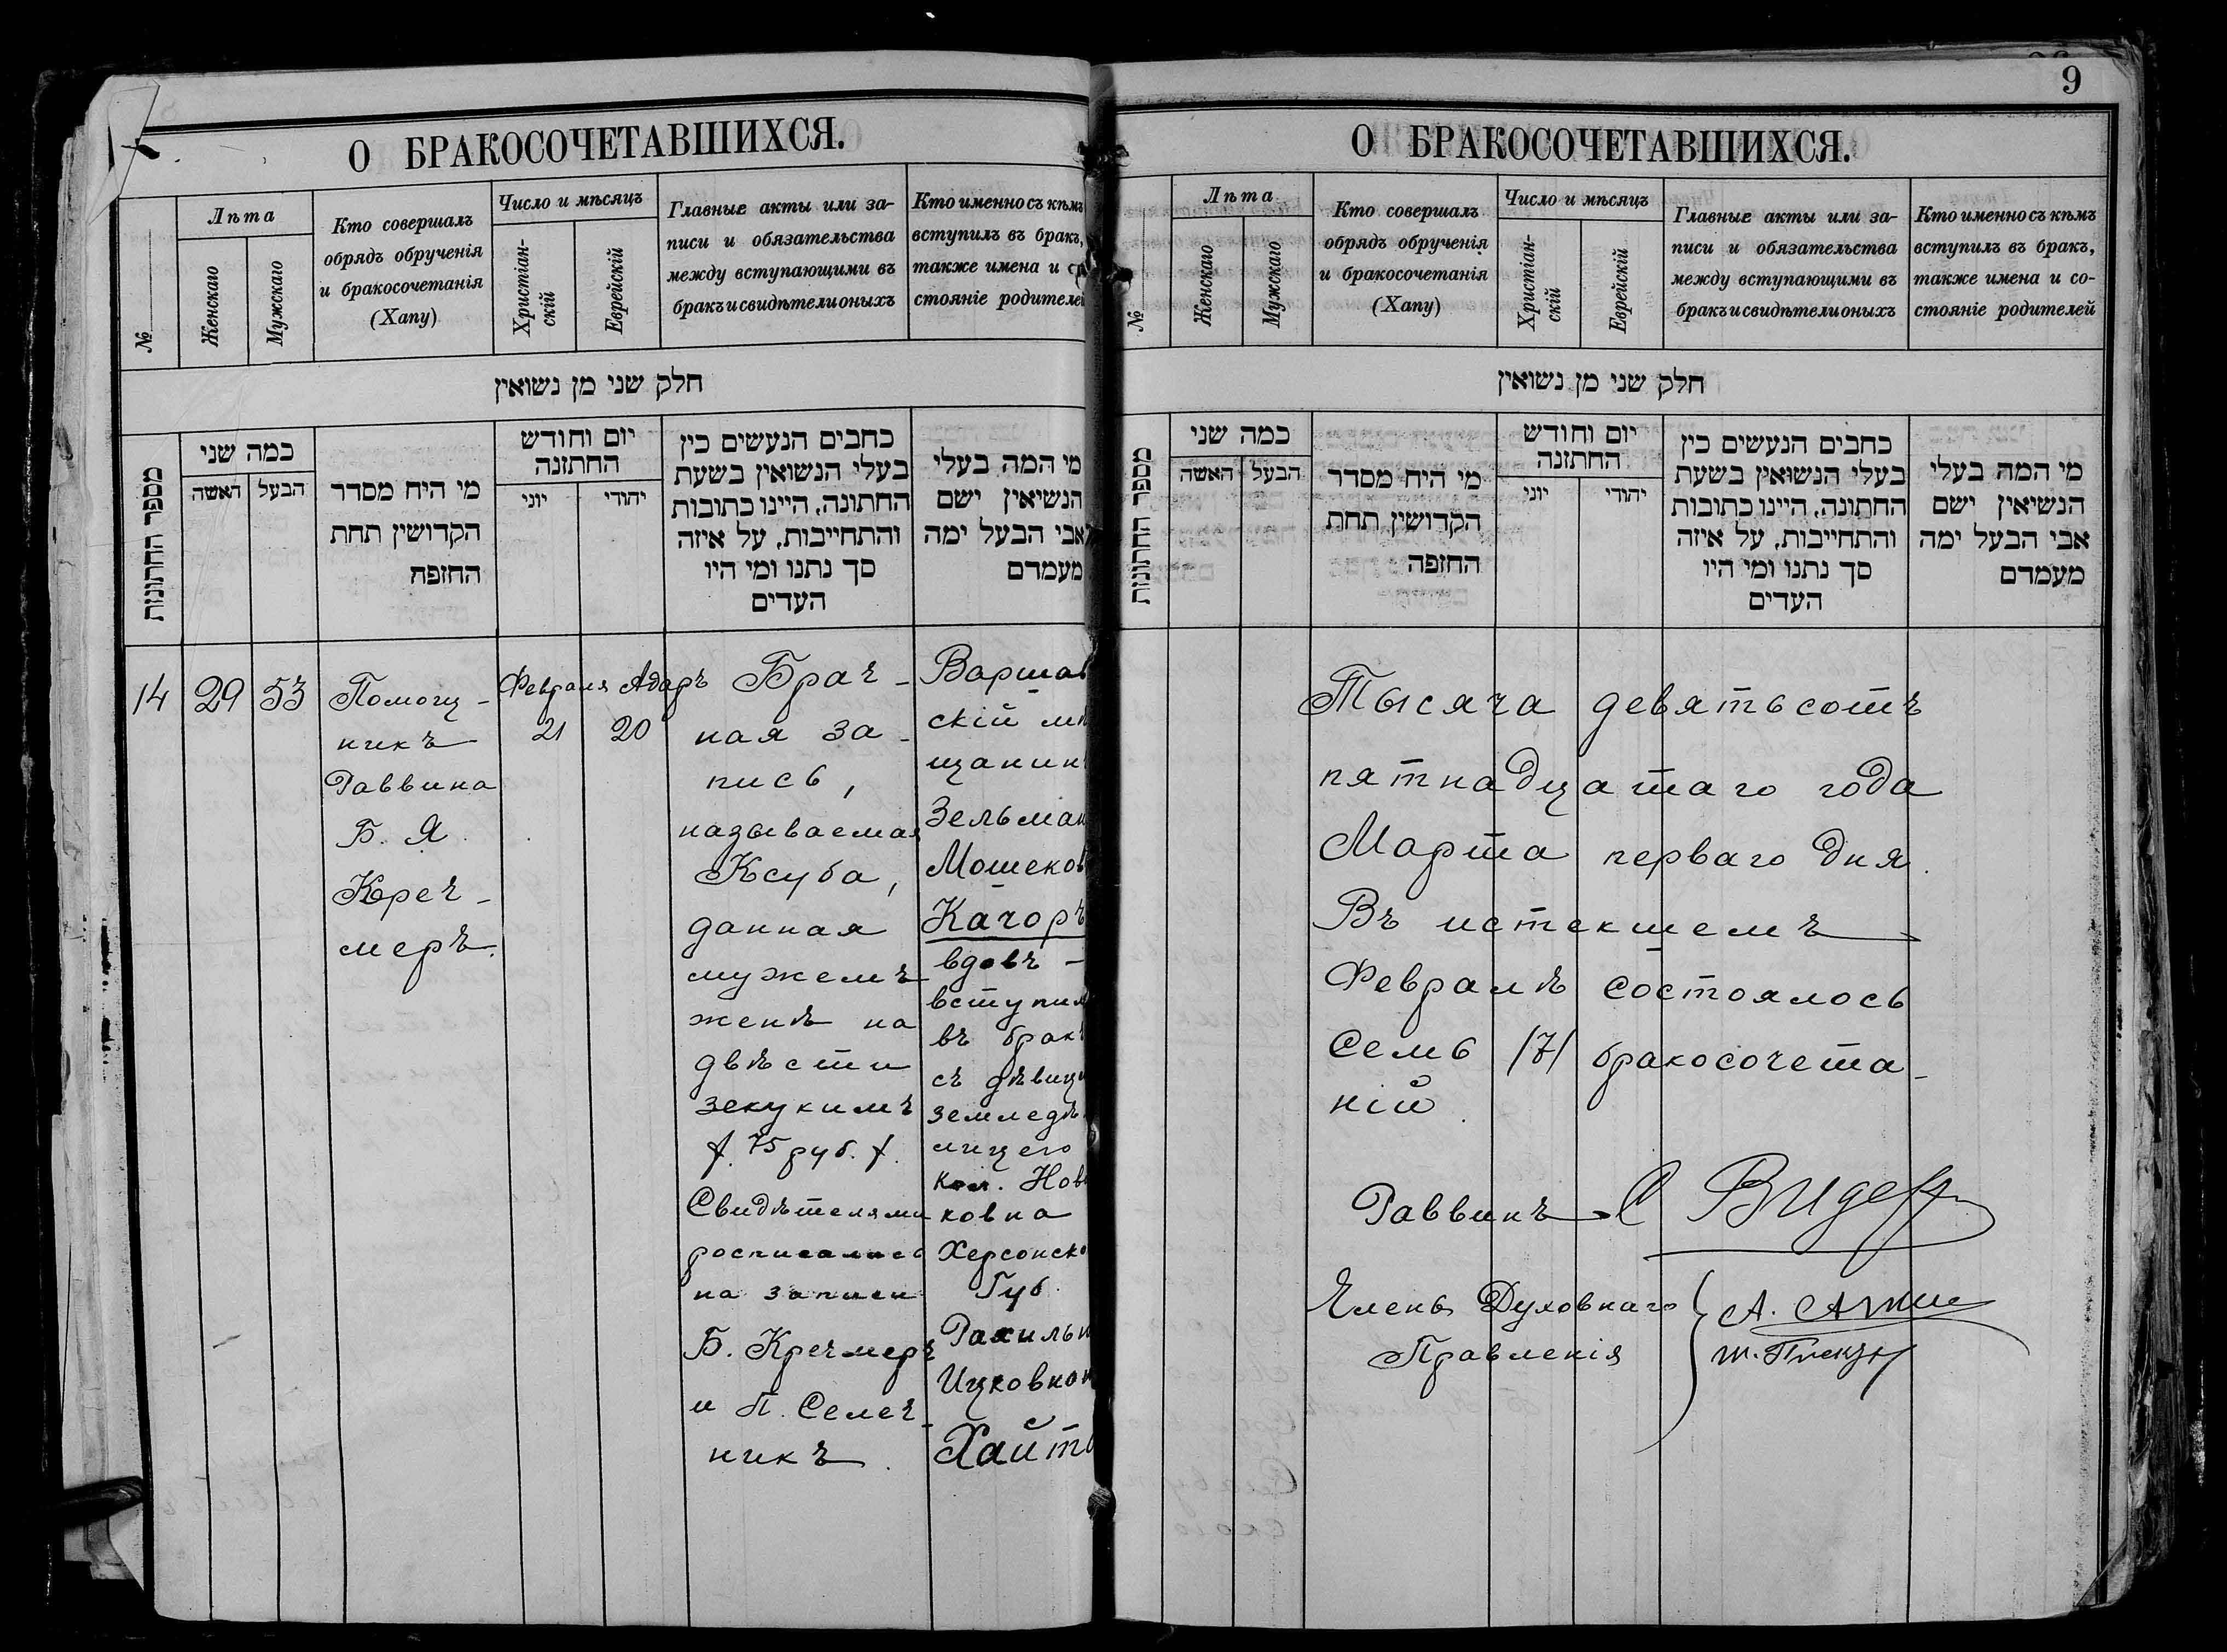 О БРАКОСОЧЕТАВШИХСЯ.
№
Лѣта
Женскаго
Мужскаго
Кто совершалъ
обрядъ обрученія
и бракосочетанія
(Хапу)
Число и мѣсяцъ
Христіан-
скій
Еврейскій
Главные акты или за-
писи и обязательства
между вступающими въ
бракъ и свидѣтели оныхъ
Кто именно съ кѣмъ
вступилъ въ бракъ,
также имена и
стояніе родителей
חלק שני מן נשואין
מספר החתונות
כמה שני
האשה
הבעל
מי היח מסדר
הקדושין תחת
החופה
יום וחודש
החתונה
יוני
יהודי
כחבים הנעשים כין
בעלי הנשואין בשעת
החתונה, היינו כתובות
והתחייבות, על איזה
סך נתנו ומי היו
העדים
מי המה בעלי
הנשיאין ישם
אבי הבעל ימה
מעמדם
14
29
53
Помощ-
никъ
Раввина
Б. Я.
Креч-
меръ.
Февраля
21
Адаръ
20
Брач-
ная за-
пись,
называемая
Ксуба,
данная
мужемъ
женѣ на
двѣсти
зекукимъ
/. 75 руб. /.
Свидѣтелями
росписались
на записи
Б. Кречмеръ
и П. Селеч-
никъ.
Варшав
скій мѣ
щанин
Зельман
Мошеков
Качоръ
вдовъ -
вступил
въ бракъ
съ дѣвиц
земледѣ
лицею
кол. Нов
ковка
Херсонско
Губ.
Рахиль
Ицковно
Хайт
9
О БРАКОСОЧЕТАВШИХСЯ.
№
Лѣта
Женскаго
Мужскаго
Кто совершалъ
обрядъ обрученія
и бракосочетанія
(Хапу)
Число и мѣсяцъ
Христіан-
скій
Еврейскій
Главные акты или за-
писи и обязательства
между вступающими въ
бракъ и свидѣтели оныхъ
Кто именно съ кѣмъ
вступилъ въ бракъ,
также имена и со-
стояніе родителей
חלק שני מן נשואין
מספר החתונות
כמה שני
האשה
הבעל
מי היח מסדר
הקדושין תחת
החופה
יום וחודש
החתונה
יוני
יהודי
כחבים הנעשים כין
בעלי הנשואין בשעת
החתונה, היינו כתובות
והתחייבות, על איזה
סך נתנו ומי היו
העדים
מי המה בעלי
הנשיאין ישם
אבי הבעל ימה
מעמדם
Тысяча девятьсотъ
пятнадцатаго года
Марта перваго дня.
Въ истекшемъ
Февралѣ состоялось
семь /7/ бракосочета-
ній.
Раввинъ С
Члены Духовнаго
Правленія
А.